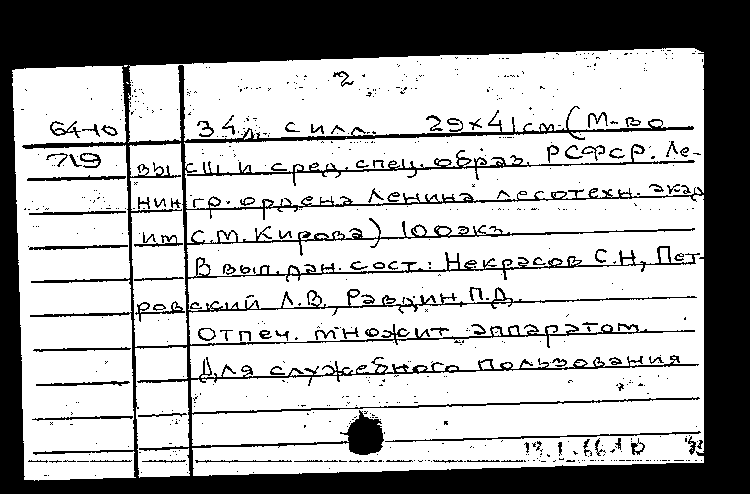 2
64-10 34 л. с илл. 29×41 см. (М-во
719 высш. и сред. спец. образ. РСФСР. Ле-
нингр. ордена Ленина лесотехн. акад
им С.М. Кирова) 100 экз.
В вып. дан. сост.: Некрасов С.Н, Пет-
ровский Л.В., Равдин П.Д.
Отпеч. множит аппаратом.
Для служебного пользования